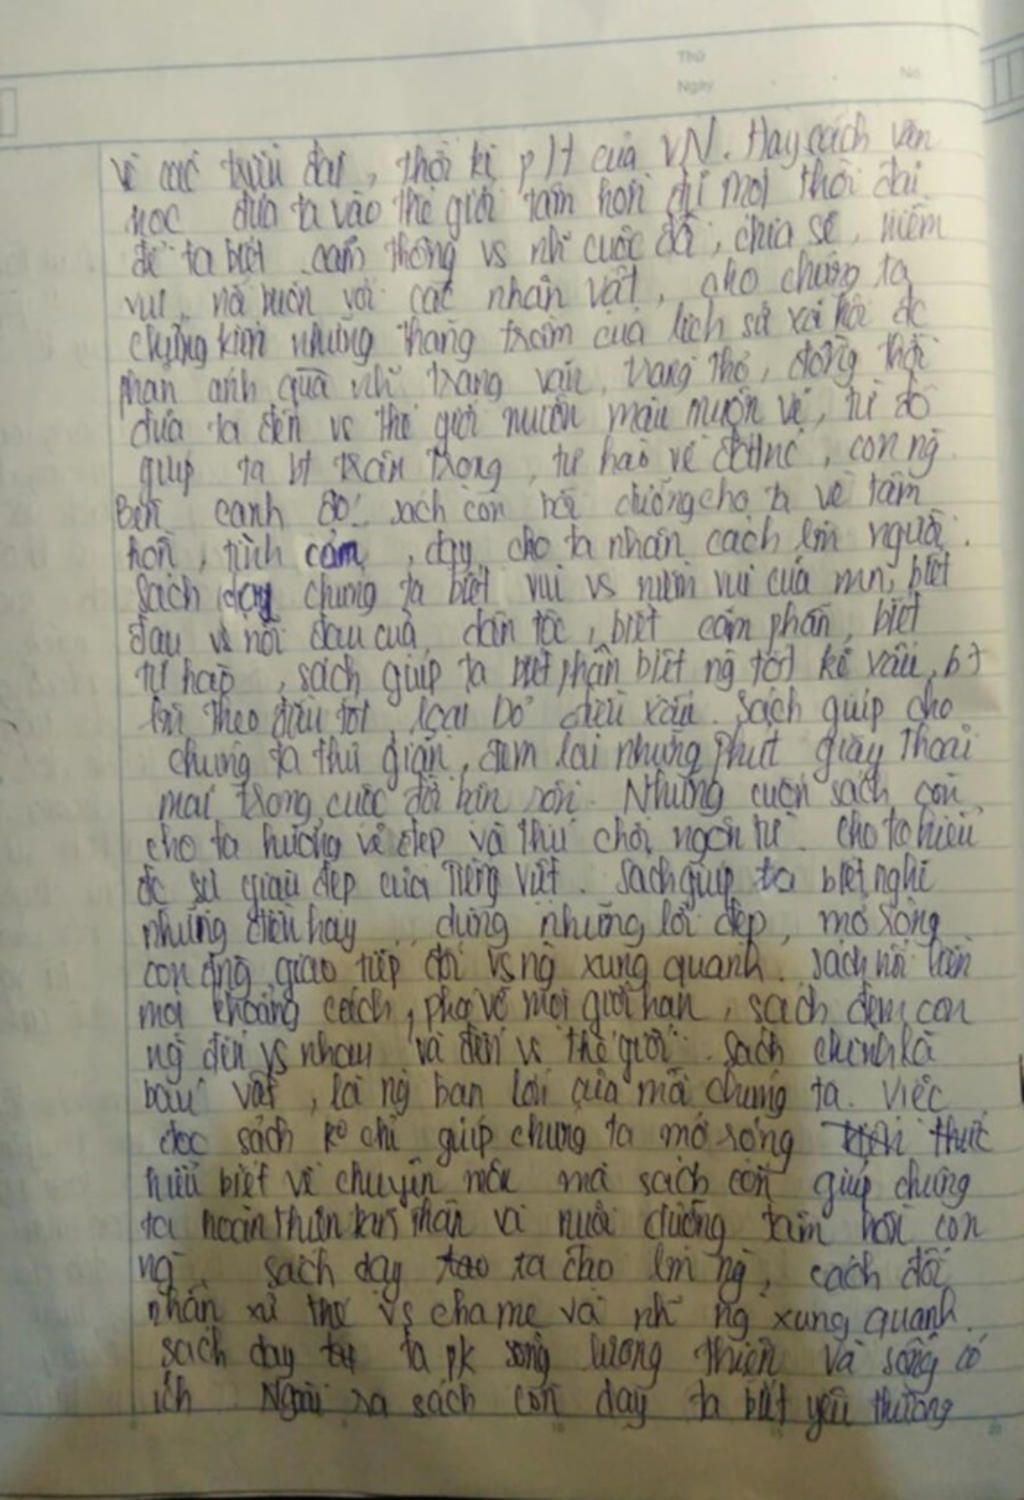 Thứ
Ngày No
về các triều đại, thời kì pH của VN. Hay sách văn
học đưa ta vào thế giới tâm hồn để mọi thời đại
để ta biết cảm thông vs nh~ cuộc đời, chia sẻ, niềm
vui, nỗi buồn với các nhân vật, cho chúng ta
chứng kiến những thăng trầm của lịch sử xã hội đc
phản ánh qua nh~ trang văn, trang thơ, đồng thời
đưa ta đến vs thế giới muôn màu muôn vẻ, từ đó
giúp ta bt trân trọng, tự hào về đất nc, con ng
Bên cạnh đó sách còn bồi dưỡng cho ta về tâm
hồn, tình cảm, dạy cho ta nhân cách lm người.
Sách dạy chúng ta biết vui vs niềm vui của mn, biết
đau vs nỗi đau của dân tộc, biết căm phẫn, biết
tự hào, sách giúp ta biết phân biệt ng tốt kẻ xấu, bt
lm theo điều tốt, loại bỏ điều xấu. Sách giúp cho
chúng ta thư giãn, đem lại những phút giây thoải
mái trong cuộc đời bận rộn. Những cuốn sách còn
cho ta hướng về đẹp và thú chơi ngôn từ. cho ta hiểu
đc sự giàu đẹp của Tiếng Việt. Sách giúp ta biết nghĩ
những điều hay, dùng những lời đẹp, mở rộng
con đng giao tiếp đối vs ng xung quanh. Sách nối liền
mọi khoảng cách, phá vỡ mọi giới hạn, sách đem con
ng đến vs nhau và đến vs thế giới. Sách chính là
báu vật, là ng bạn lớn của mỗi chúng ta. Việc
đọc sách ko chỉ giúp chúng ta mở rộng thức
hiểu biết về chuyên môn mà sách còn giúp chúng
ta hoàn thiện bản thân và nuôi dưỡng tâm hồn con
ng. Sách dạy ta cho lm ng, cách đối
nhân xử thế vs cha mẹ và nh~ ng xung quanh.
Sách dạy ta pk sống lương thiện và sống có
ích. Ngoài ra sách còn dạy ta biết yêu thương